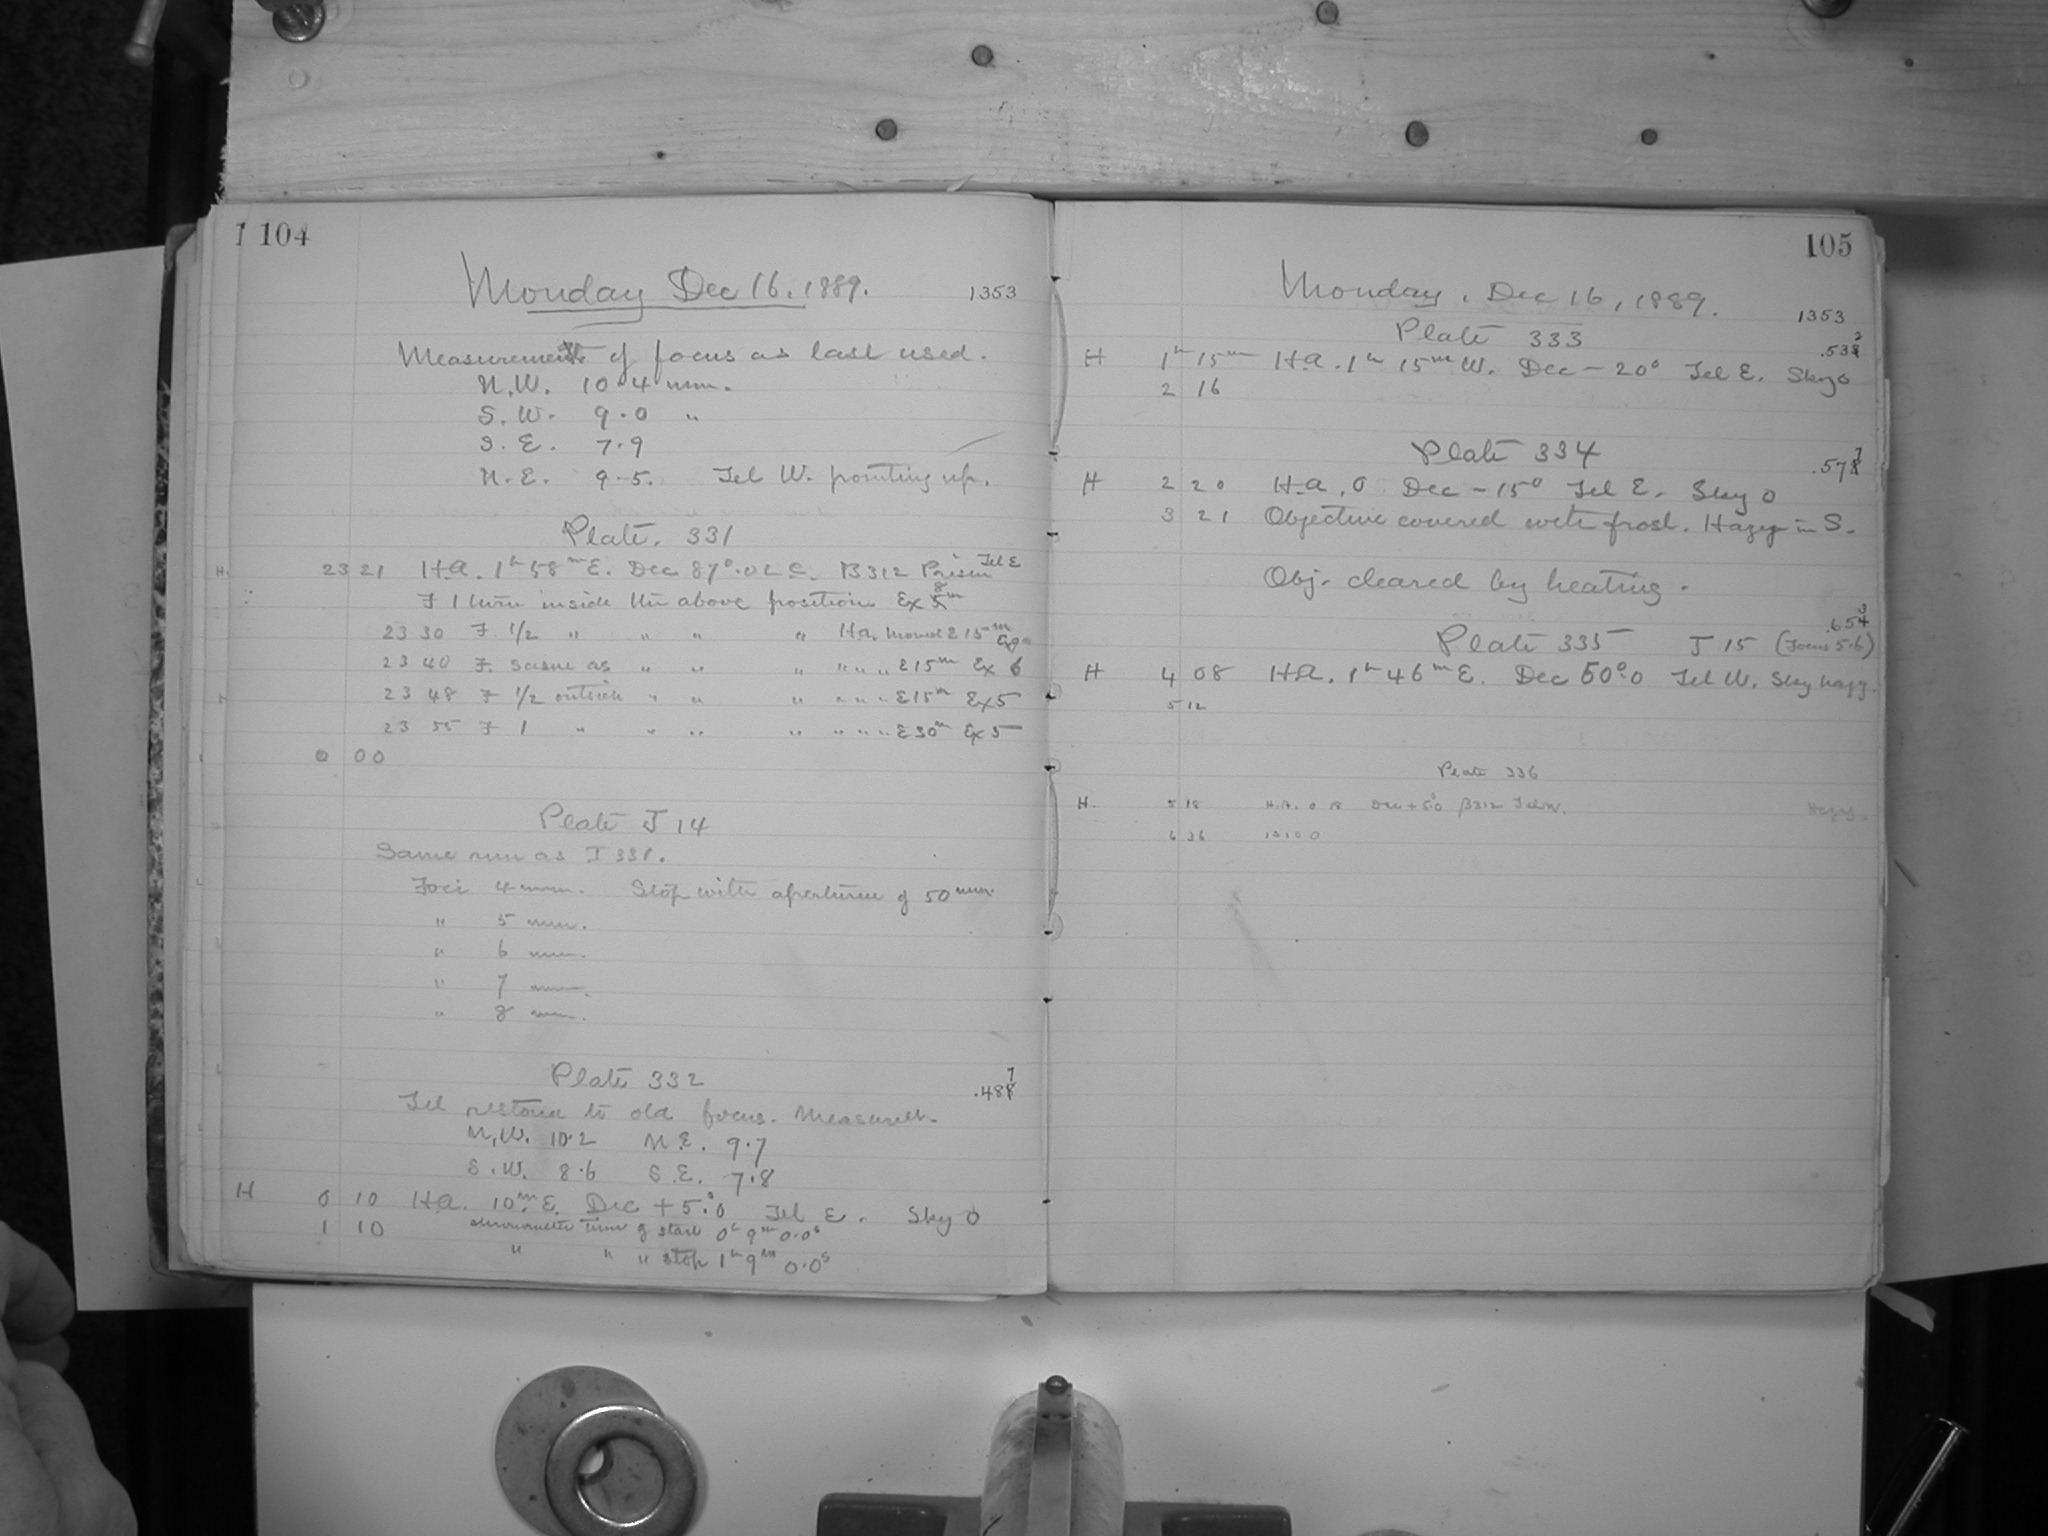 1 104
Monday Dec 16. 1889. 1353
Measurements of focus as last used.
N.W. 10.4 mm.
S.W. 9.0 "
S.E. 7.9
N.E. 9.5. Tel W. pointing up.
Plate. 331
H. 23 21 H.a. 1h 58m E. Dec 87°.0 L.C. B312 Prism Tel E
F 1 turn inside the above position Ex 8m
23 30 F. 1/2 " " " " H.a. moved E 15m
23 40 F. same as " " " " " " E 15m Ex 6
23 48 F 1/2 outside " " " " " " E 15m Ex 5
23 55 F 1 " " " " " " " E 30m Ex 5
0 00
Plate J 14
Same run as I 331.
Foci 4 mm. Stop with aperture of 50 mm.
" 5 mm.
" 6 mm.
" 7 mm.
" 8 mm.
Plate 332 .487
Tel restored to old focus. Measures.
N.W. 10.2 N.E. 9.7
S.W. 8.6 S.E. 7.8
H 0 10 H.a. 10m E. Dec + 5°.0 Tel E. Sky 0
1 10 chronometer time of start 0h 9m 0.0s
" " " stop 1h 9m 0.0s
105
Monday, Dec 16, 1889.
1353
Plate 333
.532
H 1h 15m H.a. 1h 15m W. Dec - 20° Tel E. Sky 0
2 16
Plate 334 .577
H 2 20 H.a. 0 Dec - 15° Tel E. Sky 0
3 21 Objective covered with frost. Hazy in S.
Obj. cleared by heating.
.653
Plate 335 J 15 (Focus 5.6)
H 4 08 H.a. 1h 46m E. Dec 50°.0 Tel W. Sky hazy.
5 12
Plate 336
H. 5 18 H.A. 0 Dec + 5°0 B312 Tel W. Hazy.
6 36